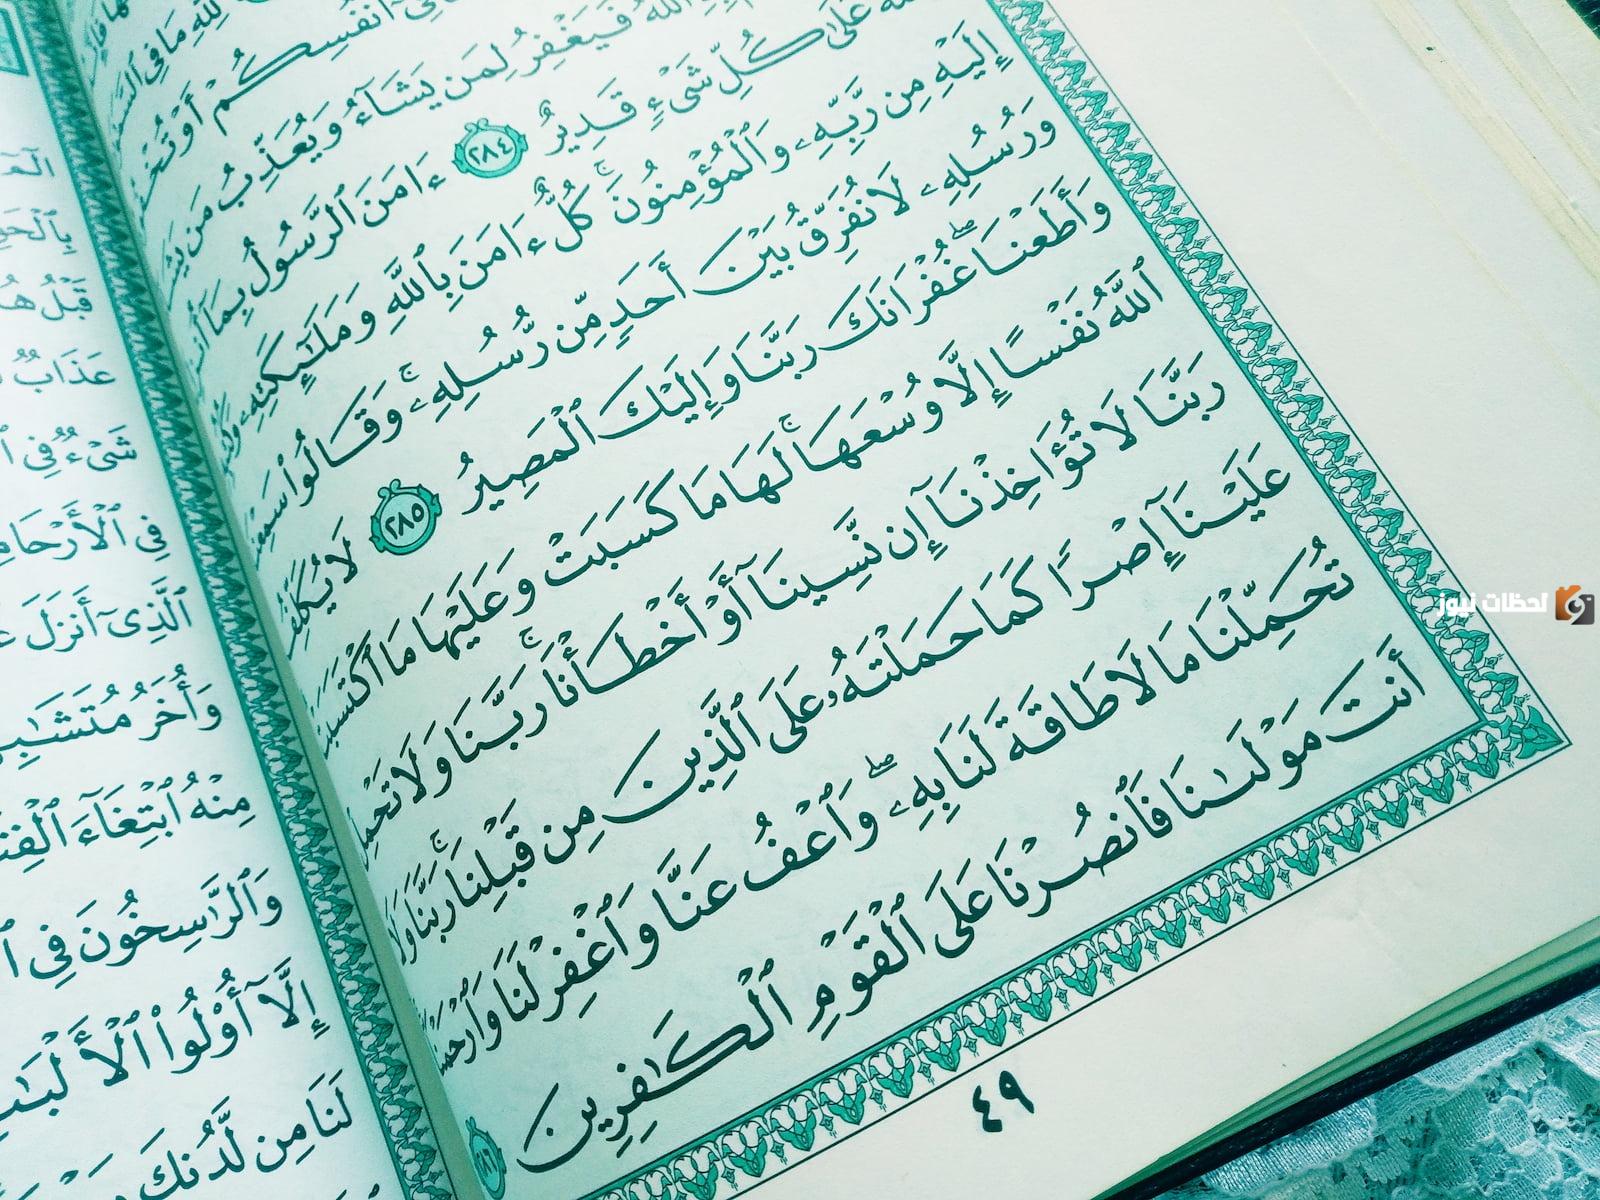 لِّلَّهِ مَا فِي
أَنفُسِكُمْ أَوْ تُخْ
فَيَغْفِرُ لِمَن يَشَآءُ وَيُعَذِّبُ مَن يَشَ
عَلَىٰ كُلِّ شَىْءٍ قَدِيرٌ ٢٨٤ ءَامَنَ ٱلرَّسُولُ بِمَآ أُنزِ
إِلَيْهِ مِن رَّبِّهِۦ وَٱلْمُؤْمِنُونَ ۚ كُلٌّ ءَامَنَ بِٱللَّهِ وَمَلَٰٓئِكَتِهِۦ وَكُتُ
وَرُسُلِهِۦ لَا نُفَرِّقُ بَيْنَ أَحَدٍ مِّن رُّسُلِهِۦ ۚ وَقَالُوا۟ سَمِعْنَ
وَأَطَعْنَا ۖ غُفْرَانَكَ رَبَّنَا وَإِلَيْكَ ٱلْمَصِيرُ ٢٨٥ لَا يُكَلِّفُ
ٱللَّهُ نَفْسًا إِلَّا وُسْعَهَا ۚ لَهَا مَا كَسَبَتْ وَعَلَيْهَا مَا ٱكْتَسَبَتْ
رَبَّنَا لَا تُؤَاخِذْنَآ إِن نَّسِينَآ أَوْ أَخْطَأْنَا ۚ رَبَّنَا وَلَا تَحْمِلْ
عَلَيْنَآ إِصْرًا كَمَا حَمَلْتَهُۥ عَلَى ٱلَّذِينَ مِن قَبْلِنَا ۚ رَبَّنَا وَلَا
تُحَمِّلْنَا مَا لَا طَاقَةَ لَنَا بِهِۦ ۖ وَٱعْفُ عَنَّا وَٱغْفِرْ لَنَا وَٱرْحَمْنَ
أَنتَ مَوْلَىٰنَا فَٱنصُرْنَا عَلَى ٱلْقَوْمِ ٱلْكَٰفِرِينَ ٢٨٦
٤٩
قَبْلُ هُ
عَذَابٌ
شَىْءٌ فِي
فِي ٱلْأَرْحَامِ
ٱلَّذِىٓ أَنزَلَ عَ
وَأُخَرُ مُتَشَٰبِ
مِنْهُ ٱبْتِغَآءَ ٱلْفِتْ
وَٱلرَّٰسِخُونَ فِي ٱ
إِلَّآ أُو۟لُوا۟ ٱلْأَلْبَٰبِ
لَنَا مِن لَّدُنكَ
لحظات نيوز